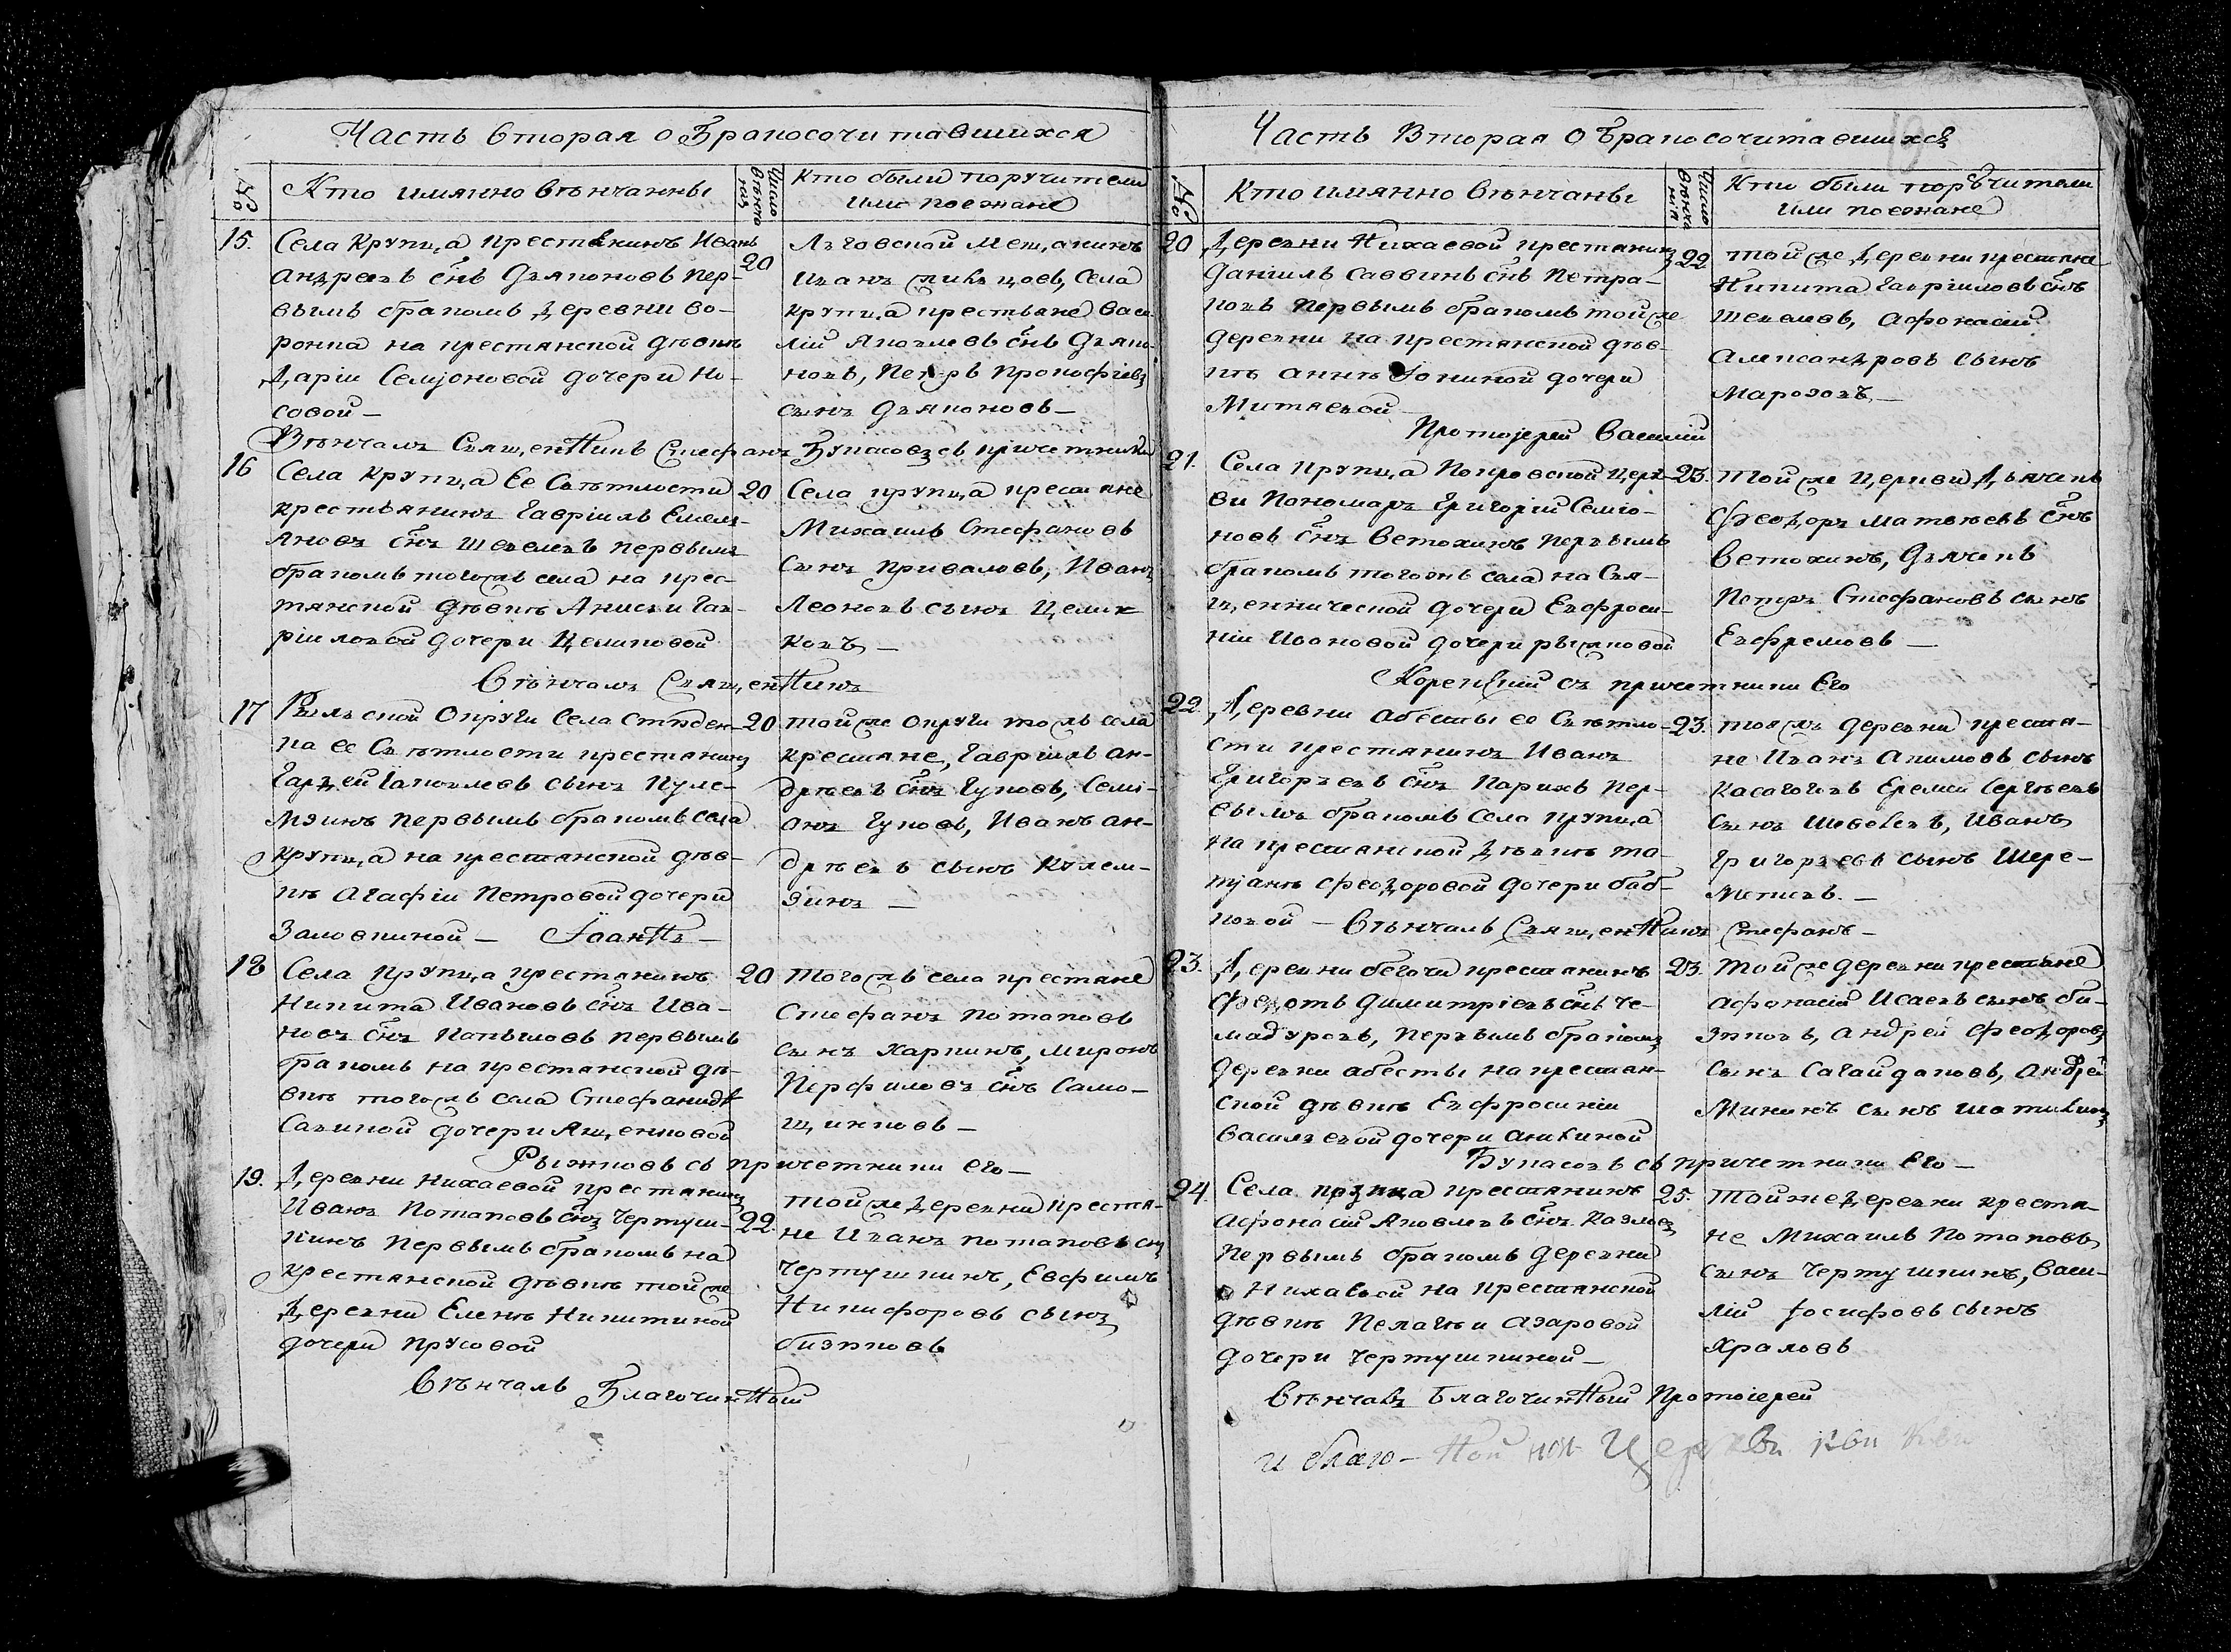 Часть вторая о Бракосочитавшихся
№
Кто имянно венчанны
Число венчания
Кто были поручители
или поежане
15.
Села Крупца крестьянинъ Иванъ
Андреевъ сн̃ъ Дьяконовъ пер-
вымъ бракомъ деревни во-
ронка на крестянской дѣвкѣ
Дарiи Семiоновой дочери Но-
совой —
20
Льговской мещанинъ
Иванъ Сливцовъ, Села
крупца крестьяне Васи
лiй Яковлевъ сн̃ъ Дьяко-
новъ, Петръ Прокофiевъ
сынъ Дьяконовъ —
Вѣнчалъ Священникъ Стефанъ Букасовъ съ причетники
16
Села Крупца Ее Свѣтлости
крестьянинъ Гаврiилъ Емель-
яновъ сн̃ъ Шевелевъ первымъ
бракомъ тогожъ села на крес-
тянской дѣвкѣ Анисьи Гав-
рiиловой дочери Целиковой
20
Села крупца крестяне
Михаилъ Стефановъ
сынъ Приваловъ, Иванъ
Леоновъ сынъ Цели-
ковъ —
Вѣнчалъ Священникъ
17
Рыльской округи Села Студен-
ка ее Свѣтлости крестянинъ
Гардѣй Яковлевъ сынъ Куле-
мзинъ первымъ бракомъ села
крупца на крестянской дѣв-
кѣ Агафiи Петровой дочери
Заловкиной — Iоаннъ —
20
той же округи то жъ села
крестяне, Гаврiилъ ан-
дрѣевъ сн̃ъ Гуковъ, Семi-
онъ Гуковъ, Иванъ ан-
дрѣевъ сынъ Кулем-
зинъ —
18
Села крупца крестянинъ
Никита Ивановъ сн̃ъ Ива-
новъ сн̃ъ Копыловъ первымъ
бракомъ на крестянской дѣ-
вкѣ тогожъ села Стефанидѣ
Савиной дочери Ященковой
20
Тогожъ села крестяне
Стефанъ Потаповъ
сынъ Харкинъ, Миронъ
Перфиловъ сн̃ъ Само-
щинковъ —
Рыжковъ съ причетники его —
19.
Деревни Нихаевой крестянинъ
Иванъ Потаповъ сн̃ъ Чертуш-
кинъ первымъ бракомъ на
крестянской дѣвкѣ той же
деревни Еленѣ Никитиной
дочери Прусовой
22.
той же деревни крестя-
не Иванъ Потаповъ сн̃ъ
Чертушкинъ, Евфимъ
Никифоровъ сынъ
бизяковъ
Вѣнчалъ Благочинный
Часть Вторая о бракосочитавшихся
№
Кто имянно венчаны
Число венчания
Кто были поручители
или поежане
20
Деревни Нихаевой крестянинъ
Данiилъ Саввинъ сн̃ъ Петра-
ковъ первымъ бракомъ той же
деревни на крестянской дѣв-
кѣ Аннѣ Iониной дочери
Митяевой
22
той же деревни крестяне
Никита Гаврiиловъ сн̃ъ
Шевелевъ, Афонасiй
Александровъ сынъ
Марозовъ —
Протоiерей Василiй
21.
Села крупца Покровской церк-
ви Пономарь Григорiй Семiо-
новъ сн̃ъ Ветохинъ первымъ
бракомъ того жъ села на Свя-
щеннической дочери Евфроси-
нiи Ивановой дочери рыжковой
23.
той же церкви Дьячекъ
Феодоръ Матвѣевъ сн̃ъ
Ветохинъ, Дьячекъ
Петръ Стефановъ сынъ
Евфремовъ —
Корецкiй съ причетники Его
22.
Деревни Абесты ее Свѣтло-
сти крестянинъ Иванъ
Григорьевъ сн̃ъ Парихъ пер-
вымъ бракомъ села крупца
на крестянской дѣвкѣ та-
тiанѣ Феодоровой дочери баб-
ковой — Вѣнчалъ Священникъ Стефанъ —
23.
тояжъ деревни крестя-
не Иванъ Акимовъ сынъ
Касаговъ Еремей Сергѣевъ
сынъ Шевелевъ, Иванъ
Григорьевъ сынъ Шере-
метевъ. —
23.
Деревни бегочи крестянинъ
Федотъ Димитрiевъ сн̃ъ Че-
мадуровъ, первымъ бракомъ
деревни абесты на крестян-
ской дѣвкѣ Евфросинiи
Васильевой дочери Аникиной
23.
той же деревни крестяне
Афонасiй Исаевъ сынъ би-
зяковъ, Андрей Феодоровъ
сынъ Сагайдаковъ, Андрей
Мининъ сынъ Шатихинъ
Букасовъ съ причетники Его —
24
Села крупца крестянинъ
Афонасiй Яковлевъ сн̃ъ Казловъ
первымъ бракомъ деревни
Нихаевой на крестянской
дѣвкѣ Пелагѣи Азаровой
дочери Чертушкиной —
25.
той же деревни крестя-
не Михаилъ Потаповъ
сынъ Чертушкинъ, Васи-
лiй Iосифовъ сынъ
Храмовъ
Вѣнчалъ Благочинный Протоiерей
и благо-